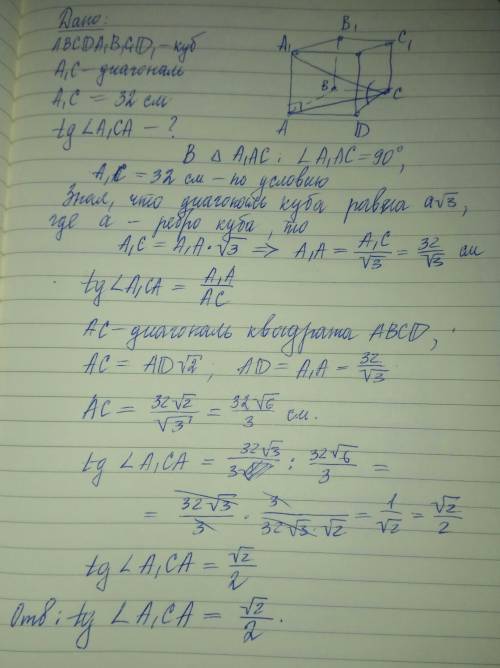 Дано:
ABCDA₁B₁C₁D₁ - куб
A₁C - диагональ
A₁C = 32 см
tg ∠A₁CA - ?
A₁ B₁ C₁
B C
A D
В △ A₁AC: ∠A₁AC = 90°,
A₁C = 32 см - по условию
Зная, что диагональ куба равна a√3,
где a - ребро куба, то
A₁C = A₁A · √3 ⇒ A₁A = A₁C/√3 = 32/√3 см
tg ∠A₁CA = A₁A/AC
AC - диагональ квадрата ABCD,
AC = AD√2; AD = A₁A = 32/√3
AC = 32√2/√3 = 32√6/3 см.
tg ∠A₁CA = 32√3/3 : 32√6/3 =
= 32√3/3 · 3/32√3·√2 = 1/√2 = √2/2
tg ∠A₁CA = √2/2
Отв: tg ∠A₁CA = √2/2.